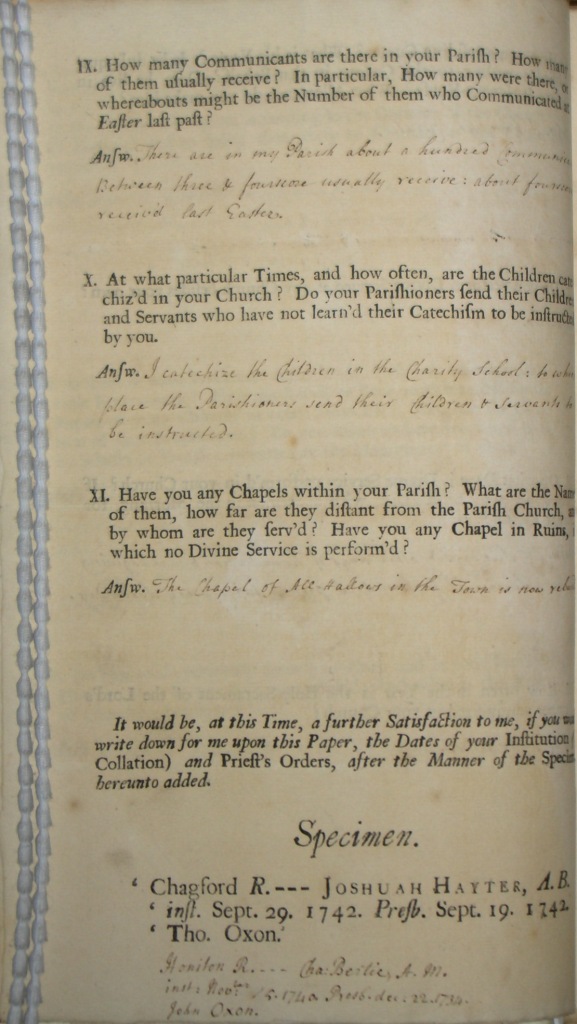 IX. How many Communicants are there in your Pariſh? How many
of them uſually receive? In particular, How many were there, or
whereabouts might be the Number of them who Communicated at
Eaſter laſt paſt?
Anſw. There are in my Parish about a hundred
Between three & fourscore usually receive: about
receiv'd last Easter.
X. At what particular Times, and how often, are the Children cate
chiz'd in your Church? Do your Pariſhioners ſend their Childre
and Servants who have not learn'd their Catechiſm to be inſtructed
by you.
Anſw. I catechize the Children in the Charity School: to which
place the Parishioners send their Children & Servants to
be instructed.
XI. Have you any Chapels within your Pariſh? What are the Nam
of them, how far are they diſtant from the Pariſh Church, a
by whom are they ſerv'd? Have you any Chapel in Ruins,
which no Divine Service is perform'd?
Anſw. The Chapel of All-Hallows in the Town is now
It would be, at this Time, a further Satisfaction to me, if you
write down for me upon this Paper, the Dates of your Inſtitution
Collation) and Prieſt's Orders, after the Manner of the Specim
hereunto added.
Specimen.
‘ Chagford R.--- JOSHUAH HAYTER, A.B.
‘ inſt. Sept. 29. 1742. Preſb. Sept. 19. 1742.
‘ Tho. Oxon.’
Honiton R. --- Cha: Bertie, A. M.
inst: Novbr 15. 1740 Presb. dec: 22. 1734.
John Oxon.